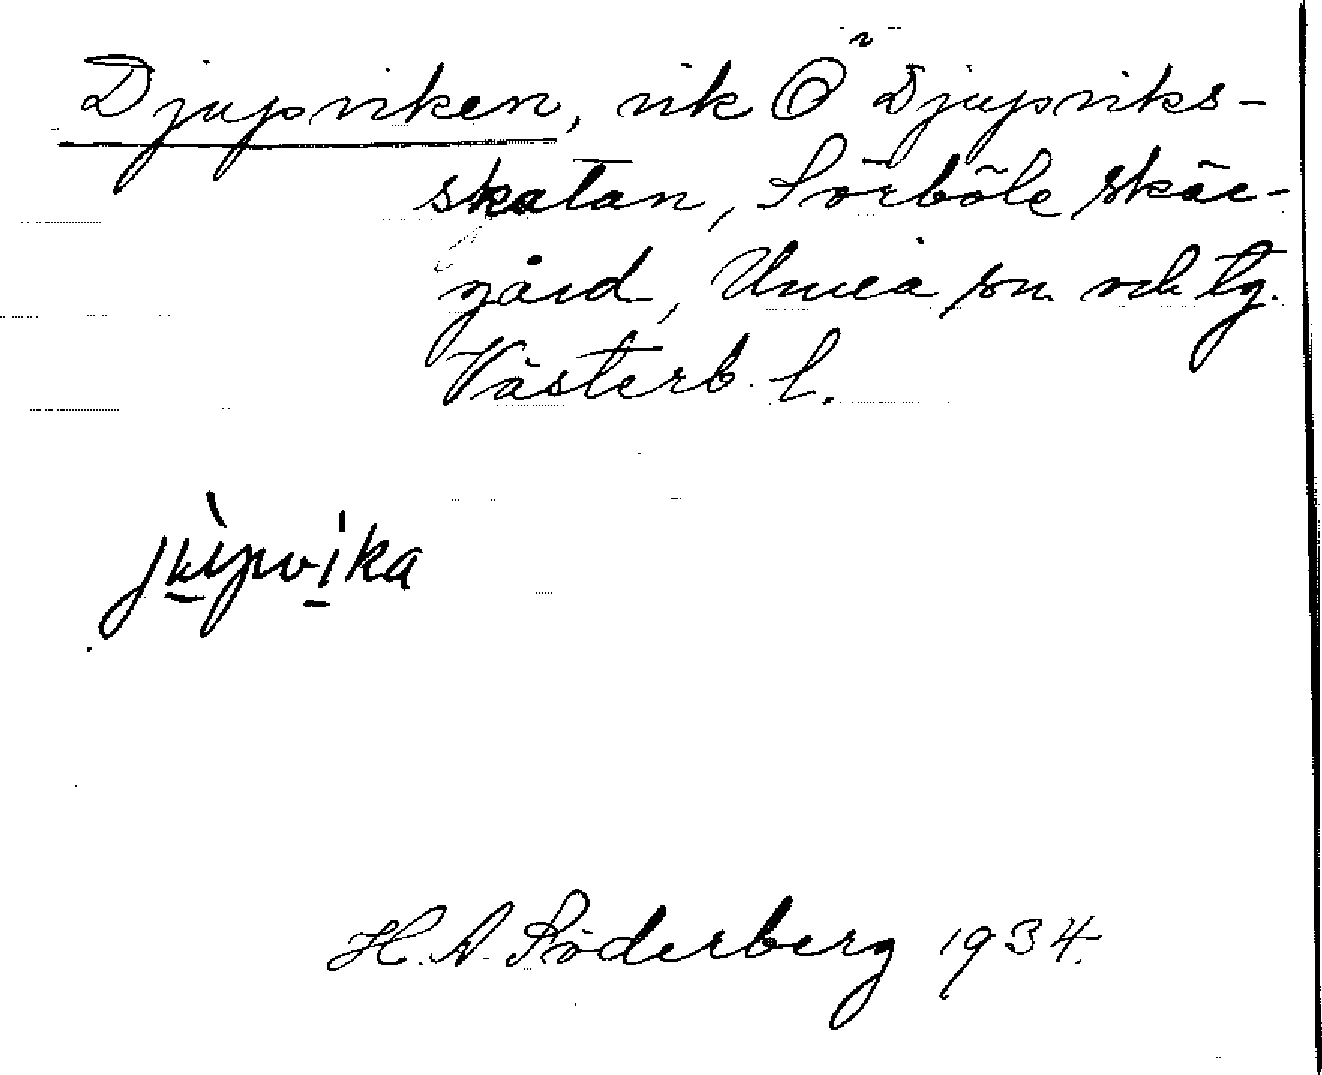 Djupviken, vik Ö Djupviks-
skatan, Sörböle skär-
gård, Umeå sn. och tg.
Västerb. l.
jùpvíka
H. A. Söderberg 1934.